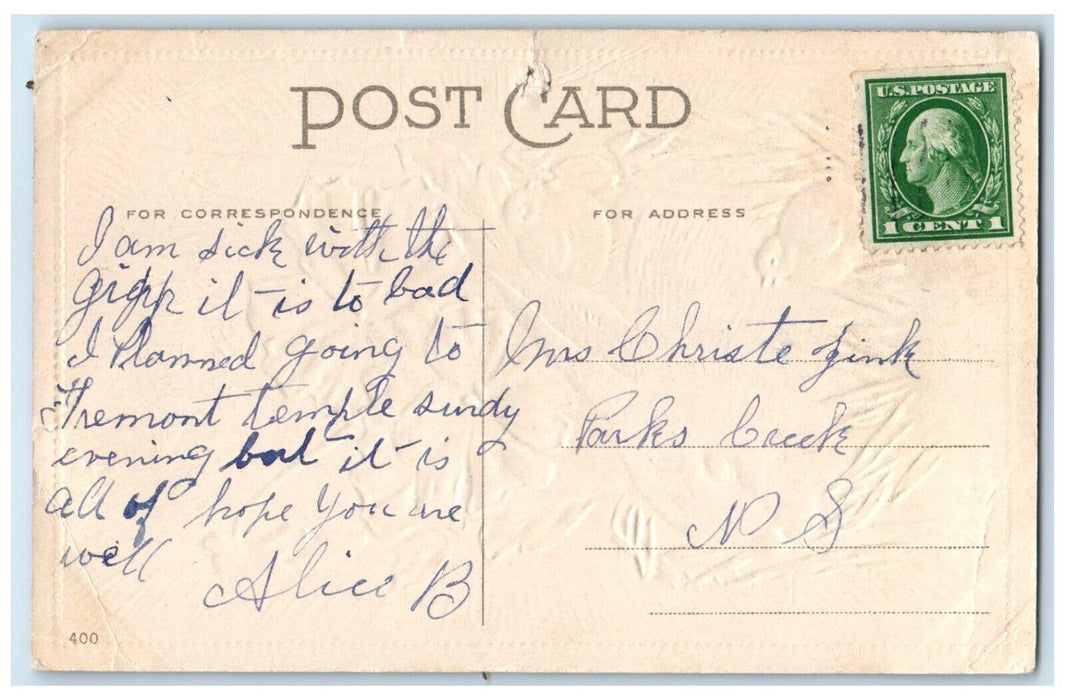 POST CARD
U.S. POSTAGE
1 CENT 1
FOR CORRESPONDENCE
FOR ADDRESS
I am sick with the
gripp it is to bad
I Planned going to
Tremont temple sundy
evening but it is
all of hope you are
well
Alice B
Mrs Christe Zink
Parks Creek
N S
400